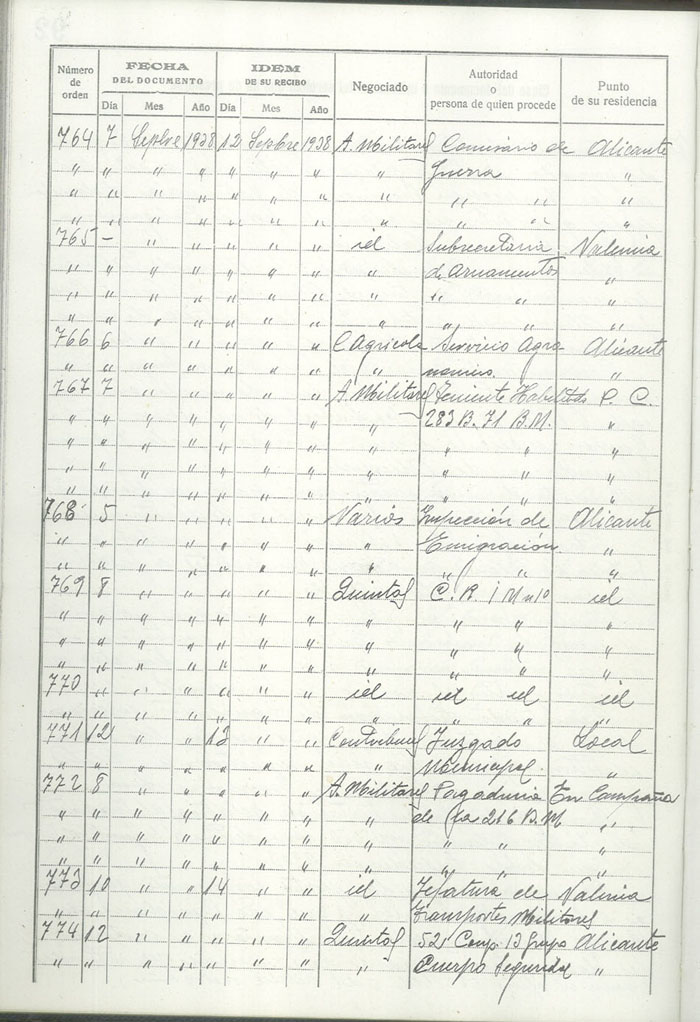 Número de orden | FECHA DEL DOCUMENTO | IDEM DE SU RECIBO | Negociado | Autoridad o persona de quien procede | Punto de su residencia
Día Mes Año Día Mes Año
764 7 Sepbre 1938 12 Sepbre 1938 A. Militares Comisario de Alicante
" " " " " " " " Guerra "
" " " " " " " " " " "
" " " " " " " " " " "
765 - " " " " " id Subsecretaria Valencia
" " " " " " " " de Armamentos "
" " " " " " " " " " "
" " " " " " " " " " "
766 6 " " " " " C Agricola Servicio Agro Alicante
" " " " " " " " nomico. "
767 7 " " " " " A. Militares Teniente Habilitado P. C.
" " " " " " " " 283 B. 71 B.M. "
" " " " " " " " " " "
" " " " " " " " " " "
" " " " " " " " " " "
768 5 " " " " " Varios Inspección de Alicante
" " " " " " " " Emigración. "
" " " " " " " " " " "
769 8 " " " " " Quintas C. R. I M nº 10 id
" " " " " " " " " " "
" " " " " " " " " " "
" " " " " " " " " " "
770 " " " " " " id id id id
" " " " " " " " " " "
771 12 " " 13 " " Juzgado Local
" " " " " " " " Municipal. "
772 8 " " " " " A. Militares Pagaduria En Campaña
" " " " " " " " de la 216 B.M "
" " " " " " " " " " "
" " " " " " " " " " "
773 10 " " 14 " " id Jefatura de Valencia
" " " " " " " " Transportes Militares
774 12 " " " " " Quintas 52 Comp. 13 Grupo Alicante
" " " " " " " " Cuerpo Seguridad "